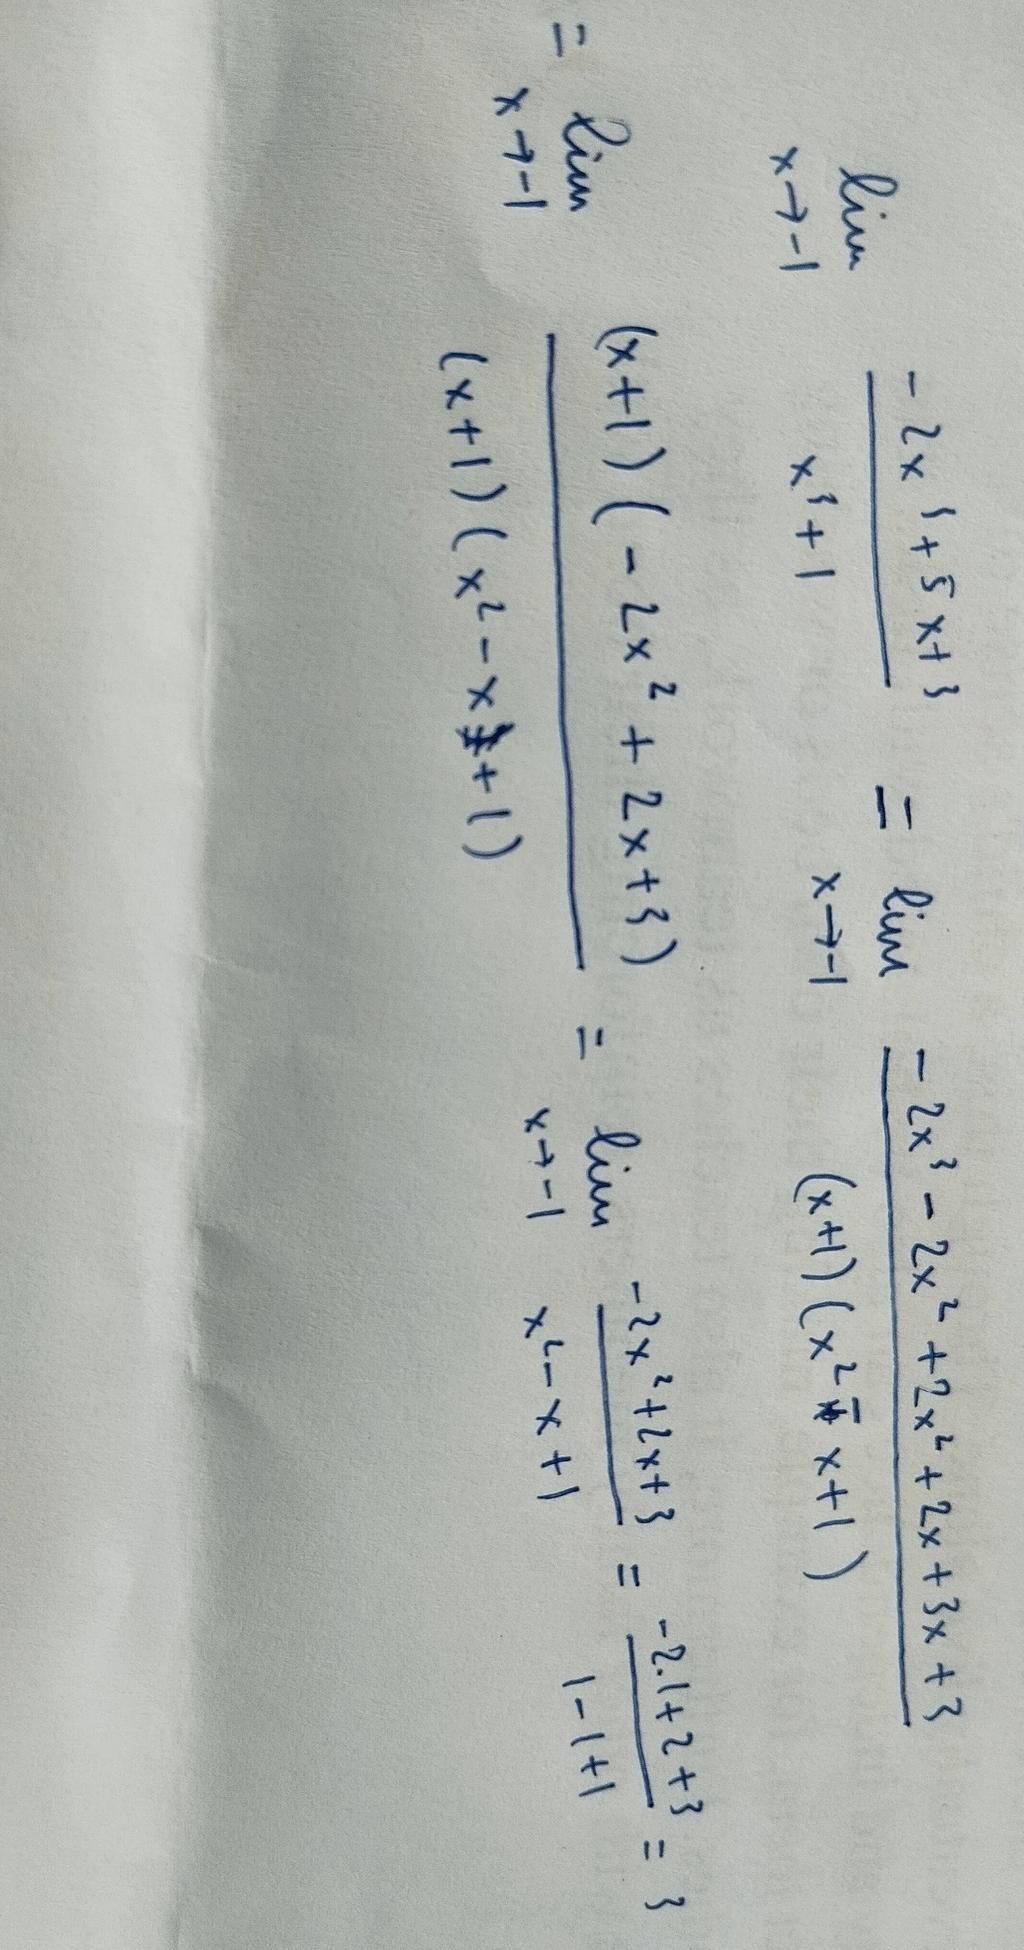 lim x→-1 (-2x³+5x+3)/(x³+1) = lim x→-1 (-2x³-2x²+2x²+2x+3x+3)/((x+1)(x²-x+1))
= lim x→-1 ((x+1)(-2x²+2x+3))/((x+1)(x²-x+1)) = lim x→-1 (-2x²+2x+3)/(x²-x+1) = (-2.1+2+3)/(1-1+1) = 3